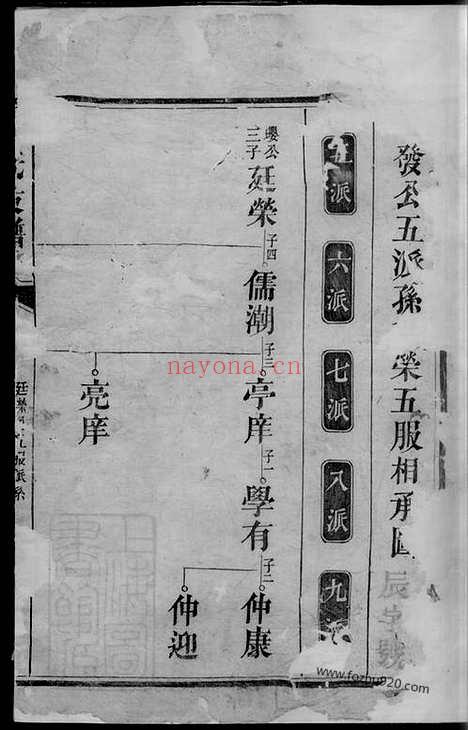 發公五派孫 榮五服相承圖
辰字號
五派
六派
七派
八派
九派
公
三子
廷榮
子四
儒潮
子三
亭庠
子一
學有
子二
仲康
仲迎
亮庠
nayona.cn
www.fozhu920.com